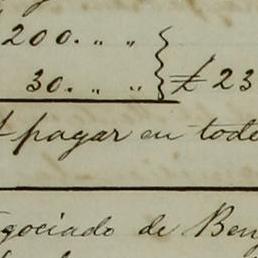 200. " "
30. " " } £ 23
pagar en tod
gociado de Ben